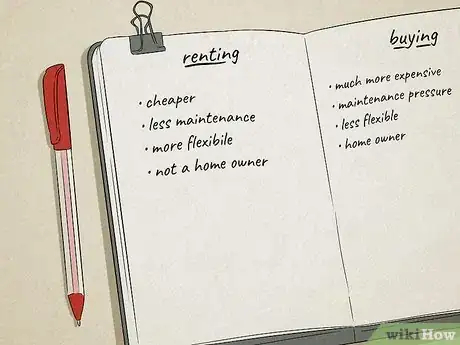 renting
• cheaper
• less maintenance
• more flexibile
• not a home owner
buying
• much more expensive
• maintenance pressure
• less flexible
• home owner
wikiHow